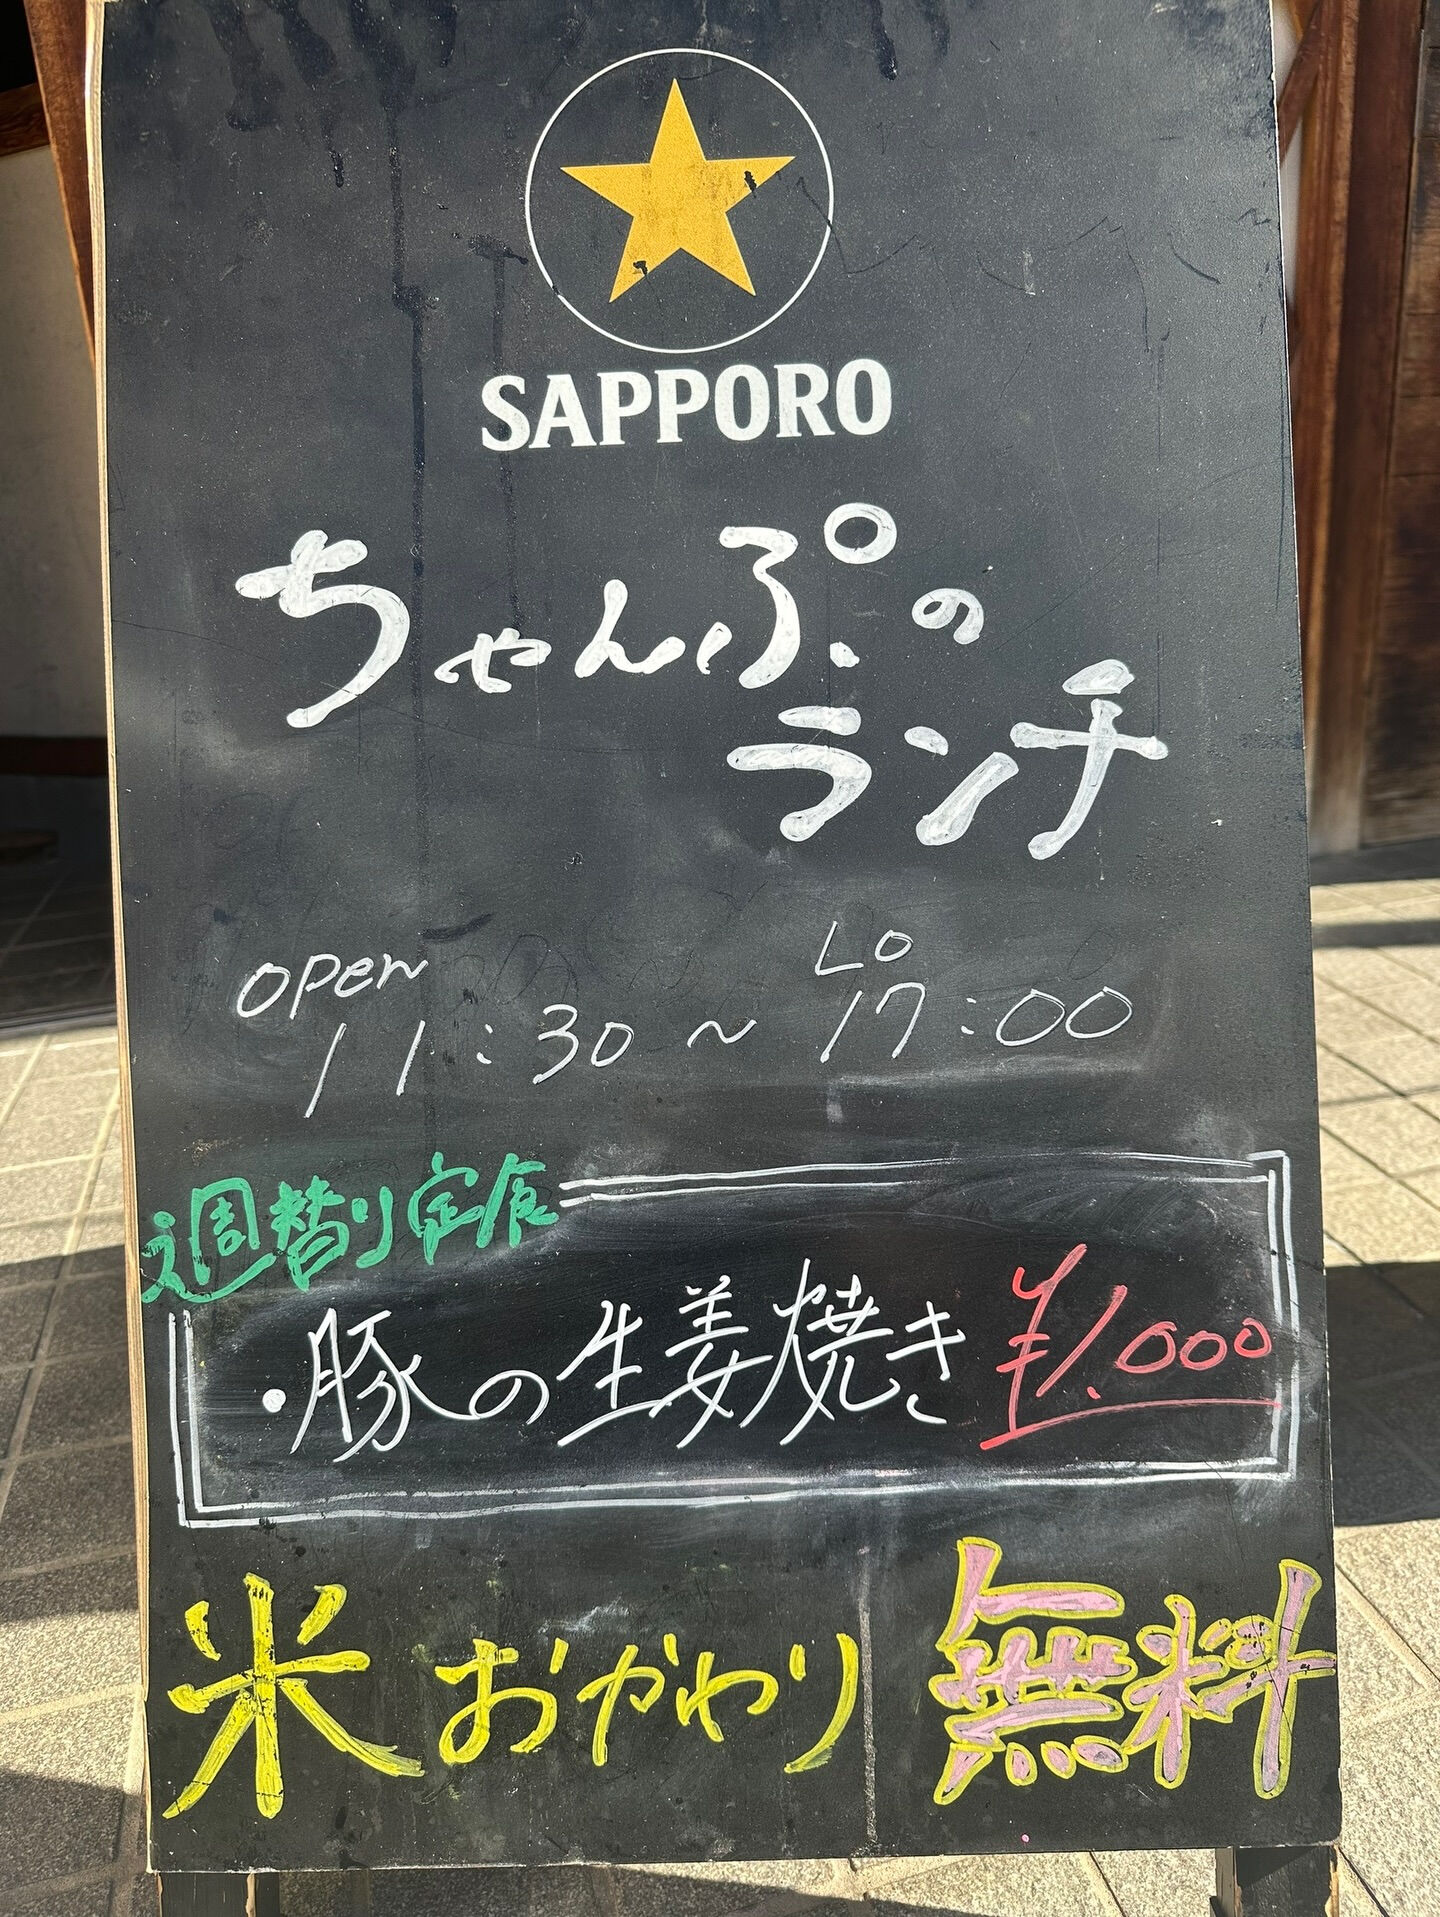 SAPPORO
ちゃんぷの
ランチ
OPEN LO
11:30 ~ 17:00
週替り定食
・豚の生姜焼き ¥1.000
米 おかわり 無料